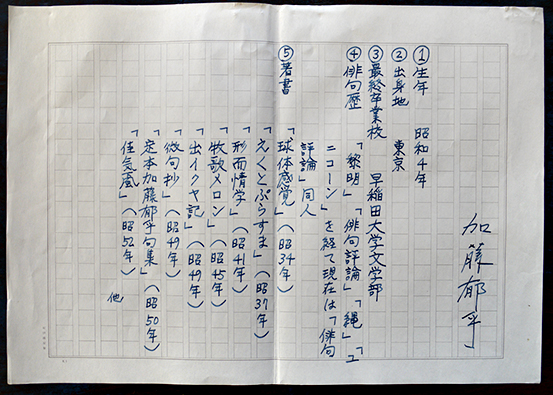 加藤郁乎
①生年　昭和4年
②出身地　東京
③最終卒業校　早稲田大学文学部
④俳句歴　「黎明」「俳句評論」「縄」「ユ
ニコーン」を経て現在は「俳句
評論」同人
⑤著書　「球体感覚」（昭34年）
「えくとぷらすま」（昭37年）
「形而情学」（昭41年）
「牧歌メロン」（昭45年）
「出イクヤ記」（昭49年）
「微句抄」（昭49年）
「定本加藤郁乎句集」（昭50年）
「佳気嵐」（昭52年）
他